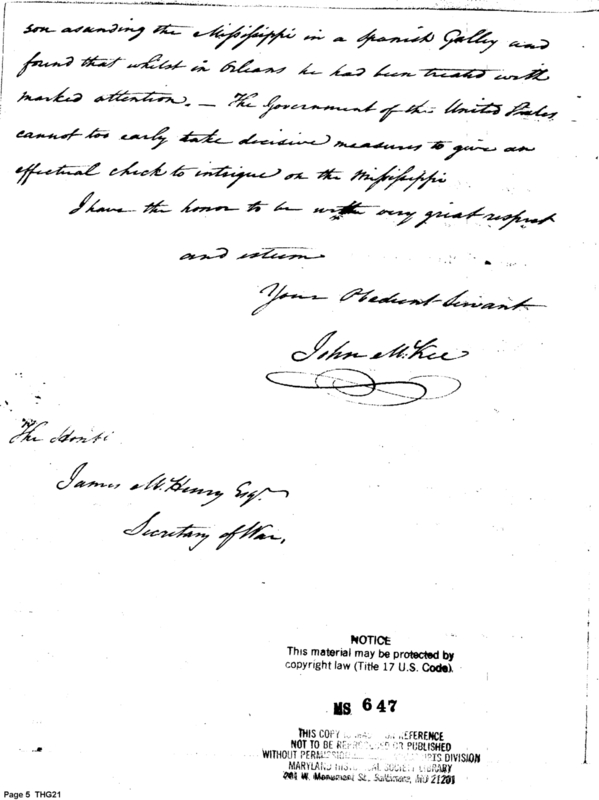 son asending the Mississippi in a Spanish Galley and
found that whilst in Orleans he had been treated with
marked attention. — The Government of the United States
cannot too early take decisive measures to give an
effectual check to intrigue on the Mississippi
I have the honor to be with very great respect
and esteem
Your Obedient Servant
John McKee
The Honble
James McHenry Esqr.
Secretary of War,
NOTICE
This material may be protected by
copyright law (Title 17 U.S. Code).
MS 647
THIS COPY REFERENCE
NOT TO BE REPRODUCED OR PUBLISHED
WITHOUT PERMISSION DIVISION
MARYLAND HISTORICAL SOCIETY LIBRARY
201 W. Monument St., Baltimore, MD 21201
Page 5 THG21